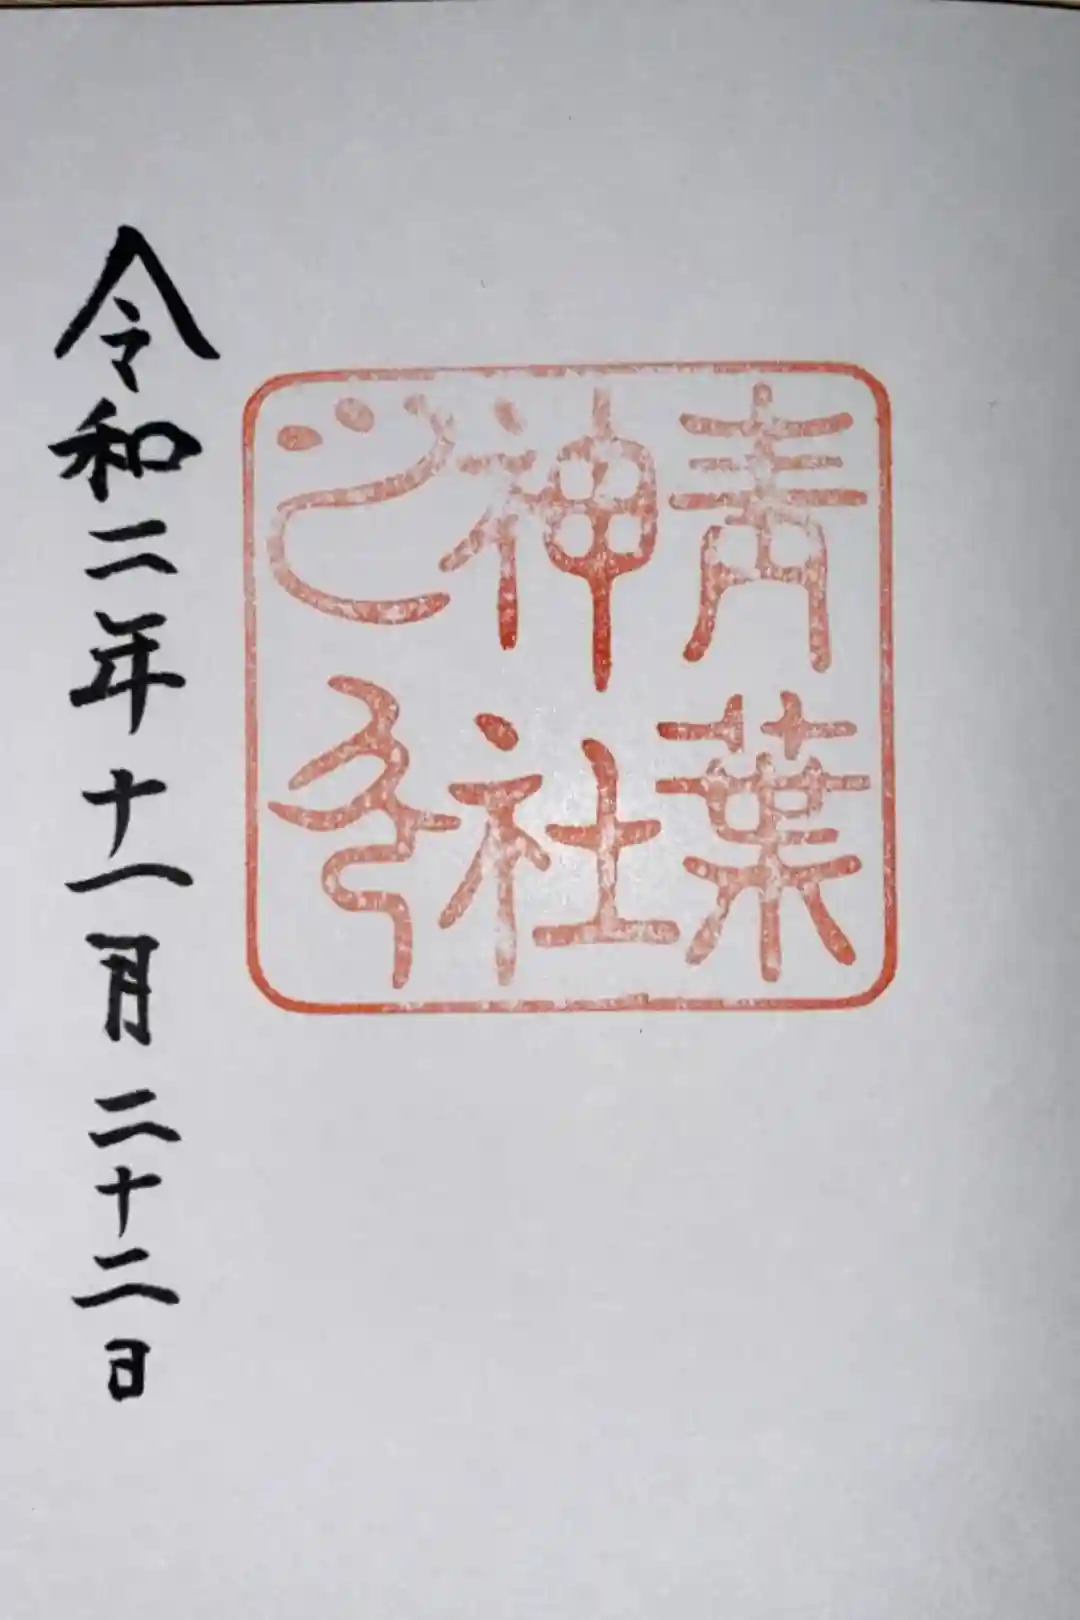 青葉
神社
之印
令和二年十一月二十二日